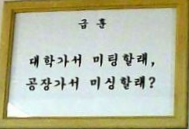 급 훈
대학가서 미팅할래,
공장가서 미싱할래?